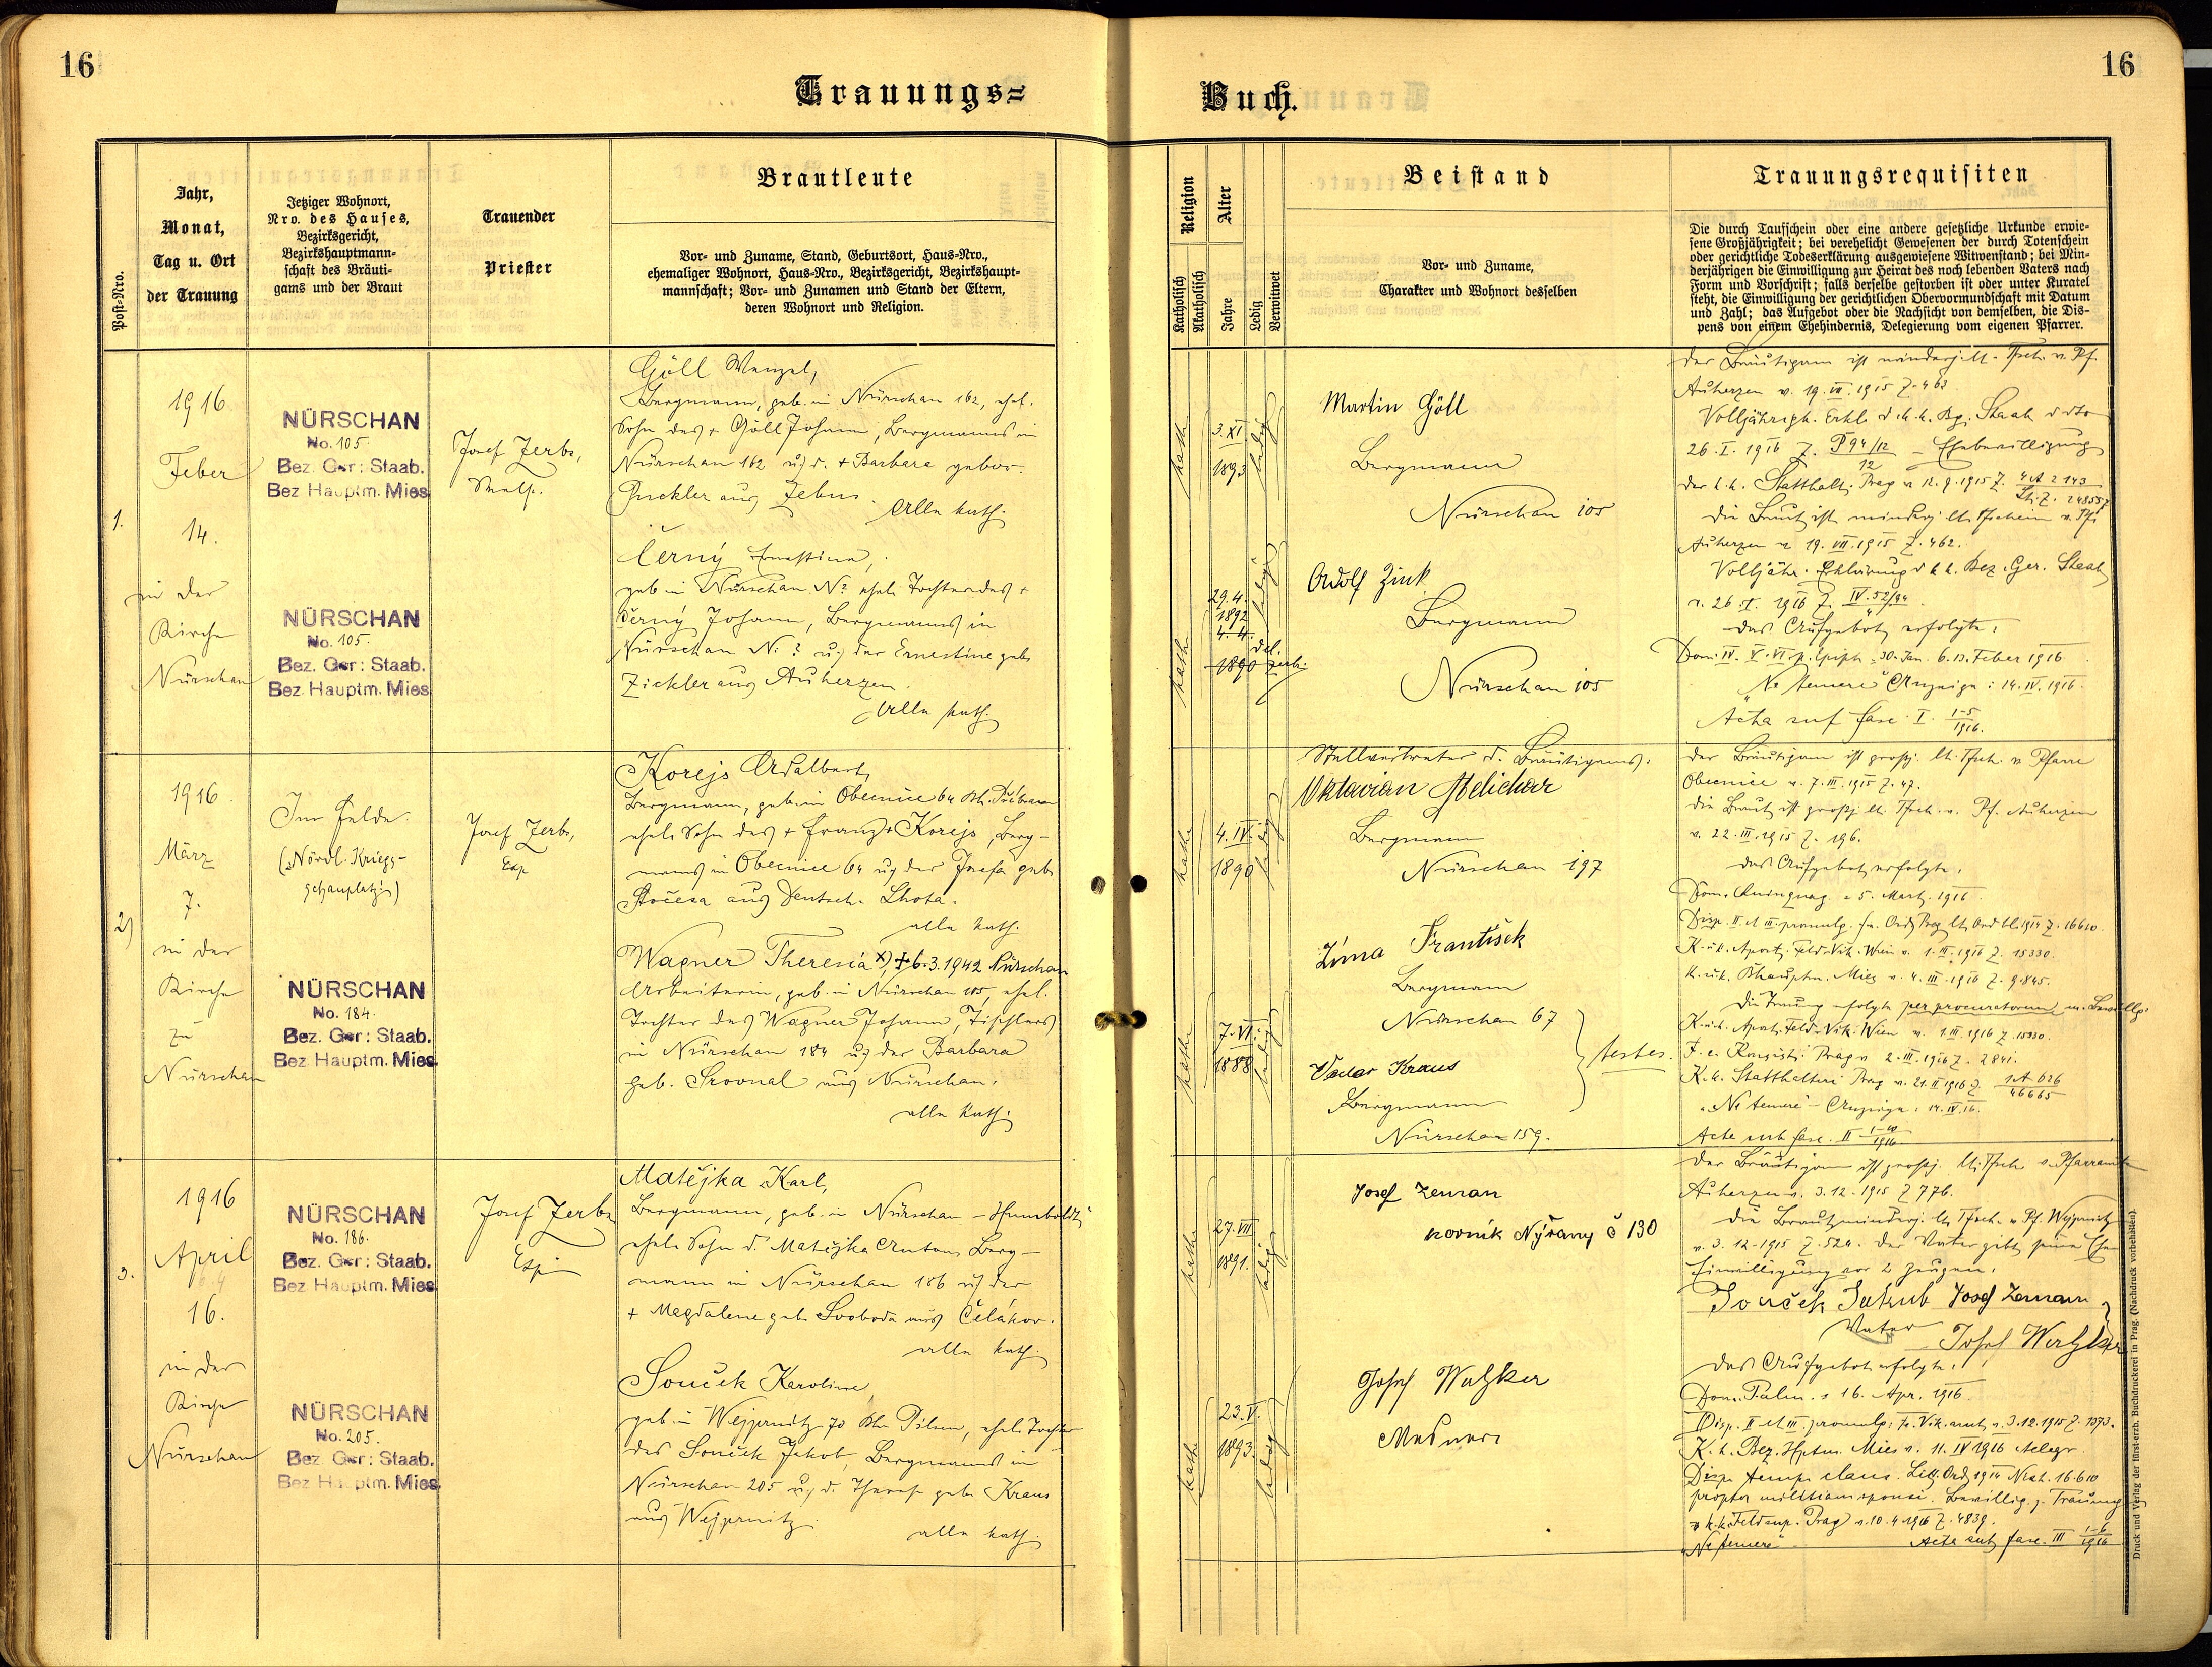 16
Trauungs=
Post-Nro.
Jahr,
Monat,
Tag u. Ort
der Trauung
Jetziger Wohnort,
Nro. des Hauses,
Bezirksgericht,
Bezirkshauptmann-
schaft des Bräuti-
gams und der Braut
Trauender
Priester
Brautleute
Vor- und Zuname, Stand, Geburtsort, Haus-Nro.,
ehemaliger Wohnort, Haus-Nro., Bezirksgericht, Bezirkshaupt-
mannschaft; Vor- und Zunamen und Stand der Eltern,
deren Wohnort und Religion.
1.
1916.
Feber
14.
in der
Kirche
Nürschan
NÜRSCHAN
No. 105.
Bez. Ger: Staab.
Bez Hauptm. Mies
NÜRSCHAN
No. 105.
Bez. Ger: Staab.
Bez. Hauptm. Mies
Josef Zerbs,
Göll Wenzel,
Bergmann, geb. in Nürschan 162, ehel.
Sohn des + Göll Johann, Bergmanns in
Nürschan 162 u. d. + Barbara gebor.
aus
Alle kath.
Černý Ernestine,
geb. in Nürschan No ehel. Tochter des +
Černý Johann, Bergmanns in
Nürschan N: ? u. der Ernestine geb.
Zickler aus Auherzen.
Alle kath.
2)
1916.
März
7.
in der
Kirche
zu
Nürschan
Im Felde.
(Nördl. Kriegs-
schauplatz)
NÜRSCHAN
No. 184.
Bez. Ger: Staab.
Bez Hauptm. Mies
Josef Zerbs,
Exp
Korejs Adalbert,
Bergmann, geb. in Obecnice 64 Bh. Příbram
ehel. Sohn des + Franz Korejs, Berg-
manns in Obecnice 64 u. der Josefa geb.
aus Deutsch. Lhota.
alle kath.
Wagner Theresia x) + 6.3.1942 Nürschan
Arbeiterin, geb. in Nürschan 105, ehel.
Tochter des Wagner Johann, Tischlers
in Nürschan 184 u. der Barbara
geb. Srovnal aus Nürschan.
alle kath.
3.
1916
April
16.
in der
Kirche
Nürschan
NÜRSCHAN
No. 186.
Bez. Ger: Staab.
Bez Hauptm. Mies
NÜRSCHAN
No. 205.
Bez. Ger: Staab.
Bez Hauptm. Mies
Josef Zerbs
Exp.
Matějka Karl,
Bergmann, geb. in Nürschan - Humboldt,
ehel. Sohn d. Matějka Anton, Berg-
mann in Nürschan 186 u. der
+ Magdalene geb. Svoboda aus Čelákov.
alle kath.
Souček Karoline,
geb. in Wejprnitz 70 Bh. Pilsen, ehel. Tochter
des Souček Jakob, Bergmanns in
Nürschan 205 u. d. geb. Kraus
aus Wejprnitz.
alle kath.
16
Buch.
Religion
Katholisch
Akatholisch
Alter
Jahre
Ledig
Verwitwet
Beistand
Vor- und Zuname,
Charakter und Wohnort desselben
Trauungsrequisiten
Die durch Taufschein oder eine andere gesetzliche Urkunde erwie-
sene Großjährigkeit; bei verehelicht Gewesenen der durch Totenschein
oder gerichtliche Todeserklärung ausgewiesene Witwenstand; bei Min-
derjährigen die Einwilligung zur Heirat des noch lebenden Vaters nach
Form und Vorschrift; falls derselbe gestorben ist oder unter Kuratel
steht, die Einwilligung der gerichtlichen Obervormundschaft mit Datum
und Zahl; das Aufgebot oder die Nachsicht von demselben, die Dis-
pens von einem Ehehindernis, Delegierung vom eigenen Pfarrer.
kath.
3.XI.
1893
ledig
kath.
29.4.
1892
4. 4.
1890
ledig
Martin Göll
Bergmann
Nürschan 105
Adolf Zink
Bergmann
Nürschan 105
Der Bräutigam ist minderj. lt. Tfsch. v. Pf.
Auherzen v. 19. VII. 1915 Z. 463.
26. I. 1916 Z. P 94/12
12
Ehebewilligung
Die Braut ist minderj. lt. Tfschein v. Pf.
Auherzen v. 19. VII. 1915 Z. 462.
Volljähr. Erklärung d. k.k. Bez. Ger. Staab
v. 26. I. 1916 Z.
das Aufgebot erfolgte:
Dom. IV. V. VI. p. Epiph. = 30. Jan. 6. 13. Feber 1916.
"Ne temere" Anzeige: 14. IV. 1916.
Acta sub fasc. I. 1-5
1916.
kath.
4. IV.
1890
ledig
kath.
7. VI.
1888
ledig
Stellvertreter d. Bräutigams:
Oktavian Melichar
Bergmann
Nürschan 197
Zíma František
Bergmann
Nürschan 67
Václav Kraus
Bergmann
Nürschan 159.
testes.
Der Bräutigam ist großj. lt. Tfsch. v. Pfarre
Obecnice v. 7. III. 1915 Z. 47.
Die Braut ist großj. lt. Tfsch. v. Pf. Auherzen
v. 22. III. 1915 Z. 196.
das Aufgebot erfolgte:
Dom. Quinquag. = 5. Mart. 1916.
K. u. k. Apost. Feld-Vik. Wien v. 1. III. 1916 Z. 15330.
Die Trauung erfolgte per procuratorem
K. u. k. Apost. Feld-Vik. Wien v. 1. III. 1916 Z. 15330.
F. e. Konsist. Prag v. 2. III. 1916 Z. 2841.
K. k. Statthalterei Prag v. 21. II. 1916 Z. 1A 626
46665
"Ne temere" - Anzeige: 14. IV. 16.
Acta sub fasc. II 1-10
1916
kath.
27. VII.
1891.
ledig
kath.
23. V.
1893.
ledig
Josef Zeman
kovník Nýřany č 130
Josef Watzker
Mesner
Der Bräutigam ist großj. lt. Tfsch. v. Pfarramte
Auherzen v. 3. 12. 1915 Z 776.
Die Braut minderj. lt. Tfsch. v. Pf. Wejprnitz
v. 3. 12. 1915 Z. 524. Der Vater gibt seine
Einwilligung vor 2 Zeugen:
Souček Jakub Josef Zeman
Vater Josef Watzker
Das Aufgebot erfolgte:
Dom. Palm. = 16. Apr. 1916.
K. k. Bez. Hptm. Mies v. 11. IV 1916
propter militiam sponsi. Bewillig. z. Trauung
Prag v. 10. 4. 1916 Z. 4839.
"Ne temere" Acta sub fasc. III 1-6
1916
Druck und Verlag der fürst-erzb. Buchdruckerei in Prag. (Nachdruck vorbehalten).